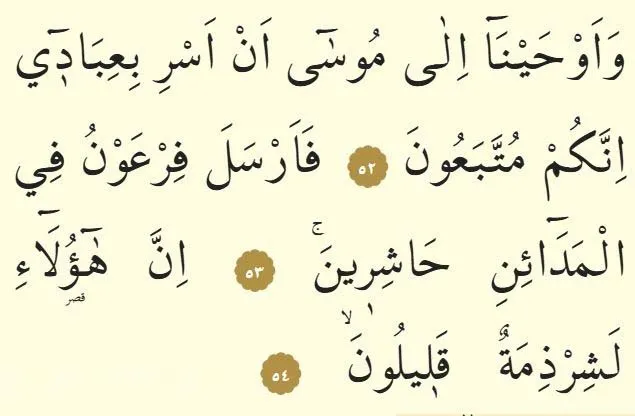 وَاَوْحَيْنَآ اِلٰى مُوسٰٓى اَنْ اَسْرِ بِعِبَادٖٓي
اِنَّكُمْ مُتَّبَعُونَ ٥٢ فَاَرْسَلَ فِرْعَوْنُ فِي
الْمَدَٓائِنِ حَاشِرٖينَۚ ٥٣ اِنَّ هٰٓؤُ۬لَٓاءِ
قصر
لَشِرْذِمَةٌ قَلٖيلُونَۙ ٥٤